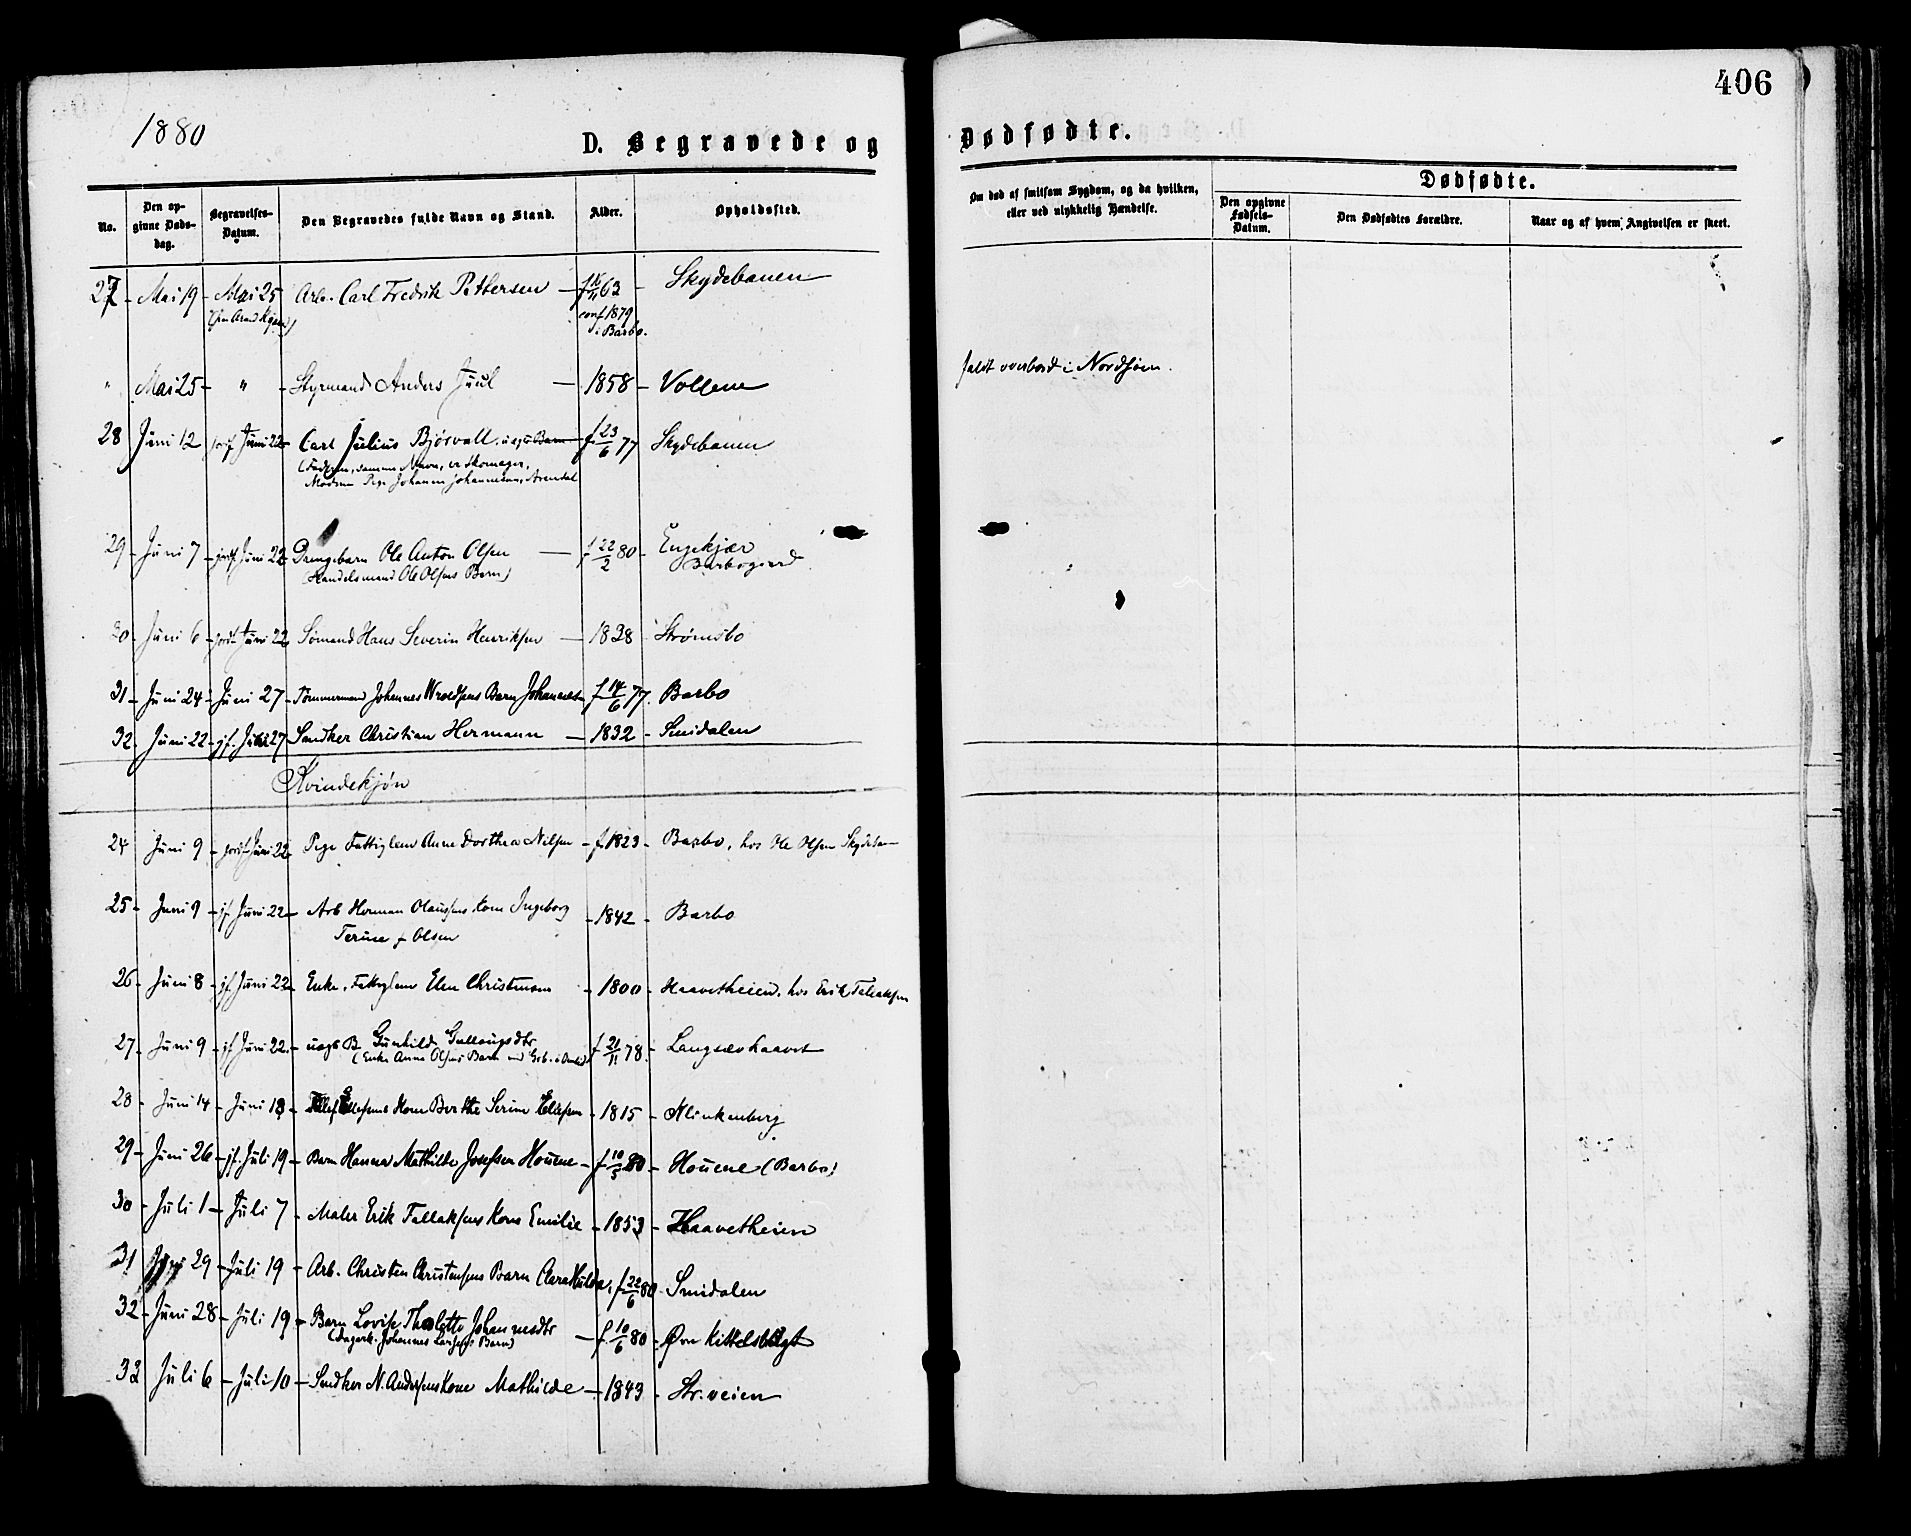 406
1880
D. Begravede og Dødfødte.
No.
Den opgivne Døds-dag.
Begravelses-Datum.
Den Begravedes fulde Navn og Stand.
Alder.
Opholdssted.
Om død af smitsom Sygdom, og da hvilken, eller ved ulykkelig Hændelse.
Dødfødte.
Den opgivne Fødsels-Datum.
Den Dødfødtes Forældre.
Naar og af hvem Angivelsen er skeet.
27 - Mai 19 - Mai 25 Arb. Carl Fredrik Pettersen - f 63 - Skydebanen
conf 1879
i Barbo.
" Mai 25 - " - Styrmand Anders Juul - 1858 - Vollene faldt overbord i Nordsøen.
28 Juni 12 Juni 22 Carl Julius Bjørvall. uægte Barn f 23/6 77 Skydebanen
(Faderen, samme Navn, er Skomager,
Moderen Pige Johanne Johannesen, Arendal
29 - Juni 7 - Juni 22 Drengebarn Ole Anton Olsen - f 22/2 80 - Engekjær
(Handelsmand Ole Olsens Barn) Barbogaard
30 - Juni 6 - Juni 22 Sømand Hans Severin Henriksen - 1838 - Strømsbo
31 - Juni 24 - Juni 27 - Tømmermand Johannes Barn Johannes f 14/6 77. Barbo
32. Juni 22 - jf. 27 Snedker Christian Hermann - 1832 - Smidalen
Kvindekjøn
24 Juni 9 - Juni 22 Pige Fattiglem Anne Dorthea Nilsen - f 1823 - Barbo, hos Ole Olsen
25 - Juni 9 - jf Juni 22 - Arb Herman Olaussens Kone Ingeborg - 1842 - Barbo
Terine f Olsen
26 - Juni 8 - jf Juni 22 Enke, Fattiglem Elen - 1800 - Haavetheien, hos Erik Tallaksen
27 - Juni 9 - jf Juni 22. - uægt B Gunhild f 21/11 78. - Langsævhaavet
(Enke Anne Olsens Barn
28 - Juni 14 - Juni 18 Kone Berthe Serine - 1815 - Klinkenberg
29 - Juni 26 - jf. Juli 19 - Barn Hanna Mathilde Josefsen Houene - f 10/5 80 - Houene (Barbo)
30 - Juli 1 - Juli 7 - Maler Erik Tallaksens Kone Emilie - 1853 - Haavetheien
31 29 - Juli 19 - Arb. Christen Christensens Barn Clara Hulda, f 22/6 80 - Smidalen
32 - Juni 28 - Juli 19 - Barn Lovise - f. 10/6 80 - Øvre Kittelsbugt
(Dagarb. Johannes Larsens Barn)
33 Juli 6 - Juli 10 - Snedker N. Andersens Kone Mathilde - 1843 - Str.veien